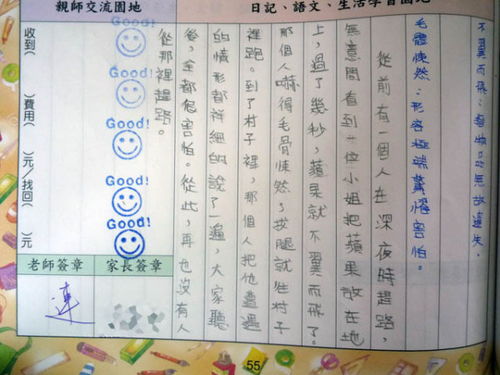 日記、語文、生活學習園地
不翼而飛：無故遺失。
毛體悚然：形容極端驚懼害怕。
從前有一個人在深夜時趕路，
無意間看到一位小姐把蘋果放在地
上，過了幾秒，蘋果就不翼而飛了。
那個人嚇得毛骨悚然，拔腿就往村子
裡跑。到了村子裡，那個人把他遭遇
的情形都祥細的說了一遍，大家聽
後，全都危害怕。從此，再也沒有人
從那裡趕路。
親師交流園地
Good!
Good!
Good!
Good!
Good!
收到( )費用( )元/找回( )元
家長簽章
老師簽章
連
55